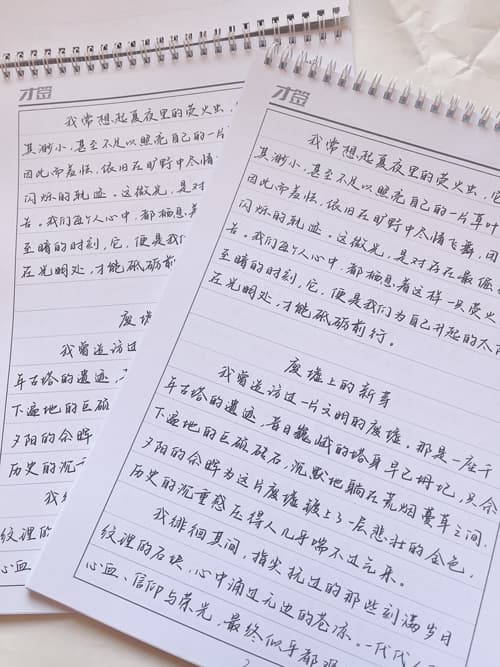 我常想起夏夜里的萤火虫,
其渺小,甚至不足以照亮自己的一片
因此而羞怯,依旧在旷野中尽情
闪烁的轨迹。这微光,是对
告。我们每个人心中,都栖息着
至暗的时刻,它,便是我们
在光明处,才能砥砺前
废墟
我曾造访过
年古塔的遗迹,
下遍地的巨
夕阳的余晖
历史的沉
我
纹理的石
心血
我常想起夏夜里的萤火虫,它
其渺小,甚至不足以照亮自己的一片草叶
因此而羞怯,依旧在旷野中尽情飞舞,
闪烁的轨迹。这微光,是对存在最倔
告。我们每个人心中,都栖息着这样一只萤火
至暗的时刻,它,便是我们为自己升起的太
在光明处,才能砥砺前行。
废墟上的新芽
我曾造访过一片文明的废墟。那是一座千
年古塔的遗迹,昔日巍峨的塔身早已坍圮,只余
下遍地的巨砾石,沉默地躺在荒烟蔓草之间.
夕阳的余晖为这片废墟镀上了一层悲壮的金色,
历史的沉重愁压得人几乎喘不过气来。
我徘徊其间,指尖抚过的那些刻满岁月
纹理的石块,心中涌过无边的苍凉。一代代
心血、信仰与荣光,最终似乎都